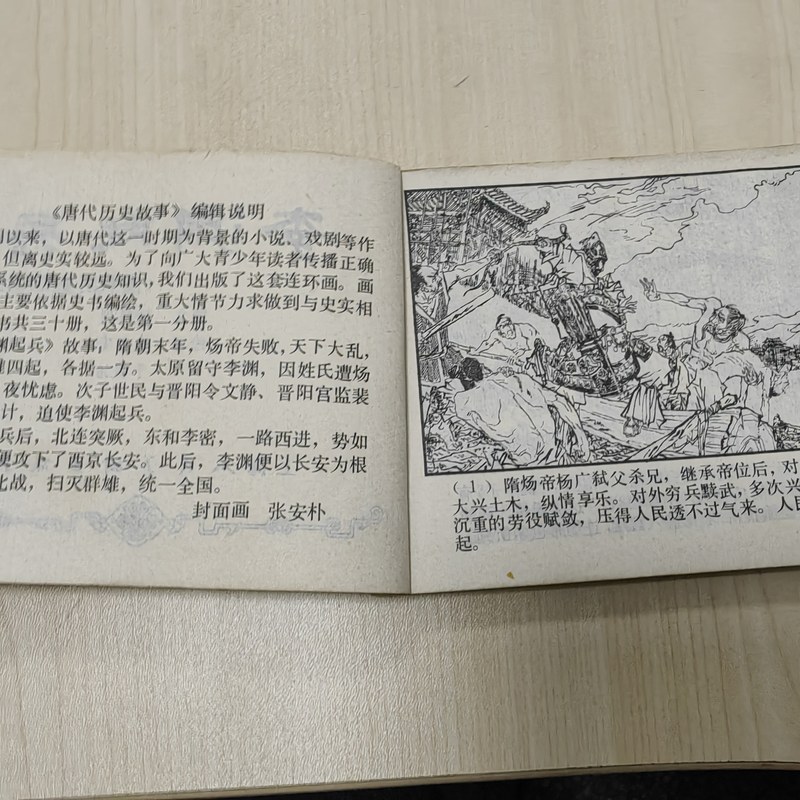 《唐代历史故事》编辑说明
以来，以唐代这一时期为背景的小说、戏剧等作
但离史实较远。为了向广大青少年读者传播正确
系统的唐代历史知识，我们出版了这套连环画。画
主要依据史书编绘，重大情节力求做到与史实相
书共三十册，这是第一分册。
渊起兵》故事：隋朝末年，炀帝失败，天下大乱，
四起，各据一方。太原留守李渊，因姓氏遭炀
夜忧虑。次子世民与晋阳令文静、晋阳宫监裴
计，迫使李渊起兵。
兵后，北连突厥，东和李密，一路西进，势如
便攻下了西京长安。此后，李渊便以长安为根
北战，扫灭群雄，统一全国。
封面画 张安朴
（1）隋炀帝杨广弑父杀兄，继承帝位后，对
大兴土木，纵情享乐。对外穷兵黩武，多次兴
沉重的劳役赋敛，压得人民透不过气来。人民
起。